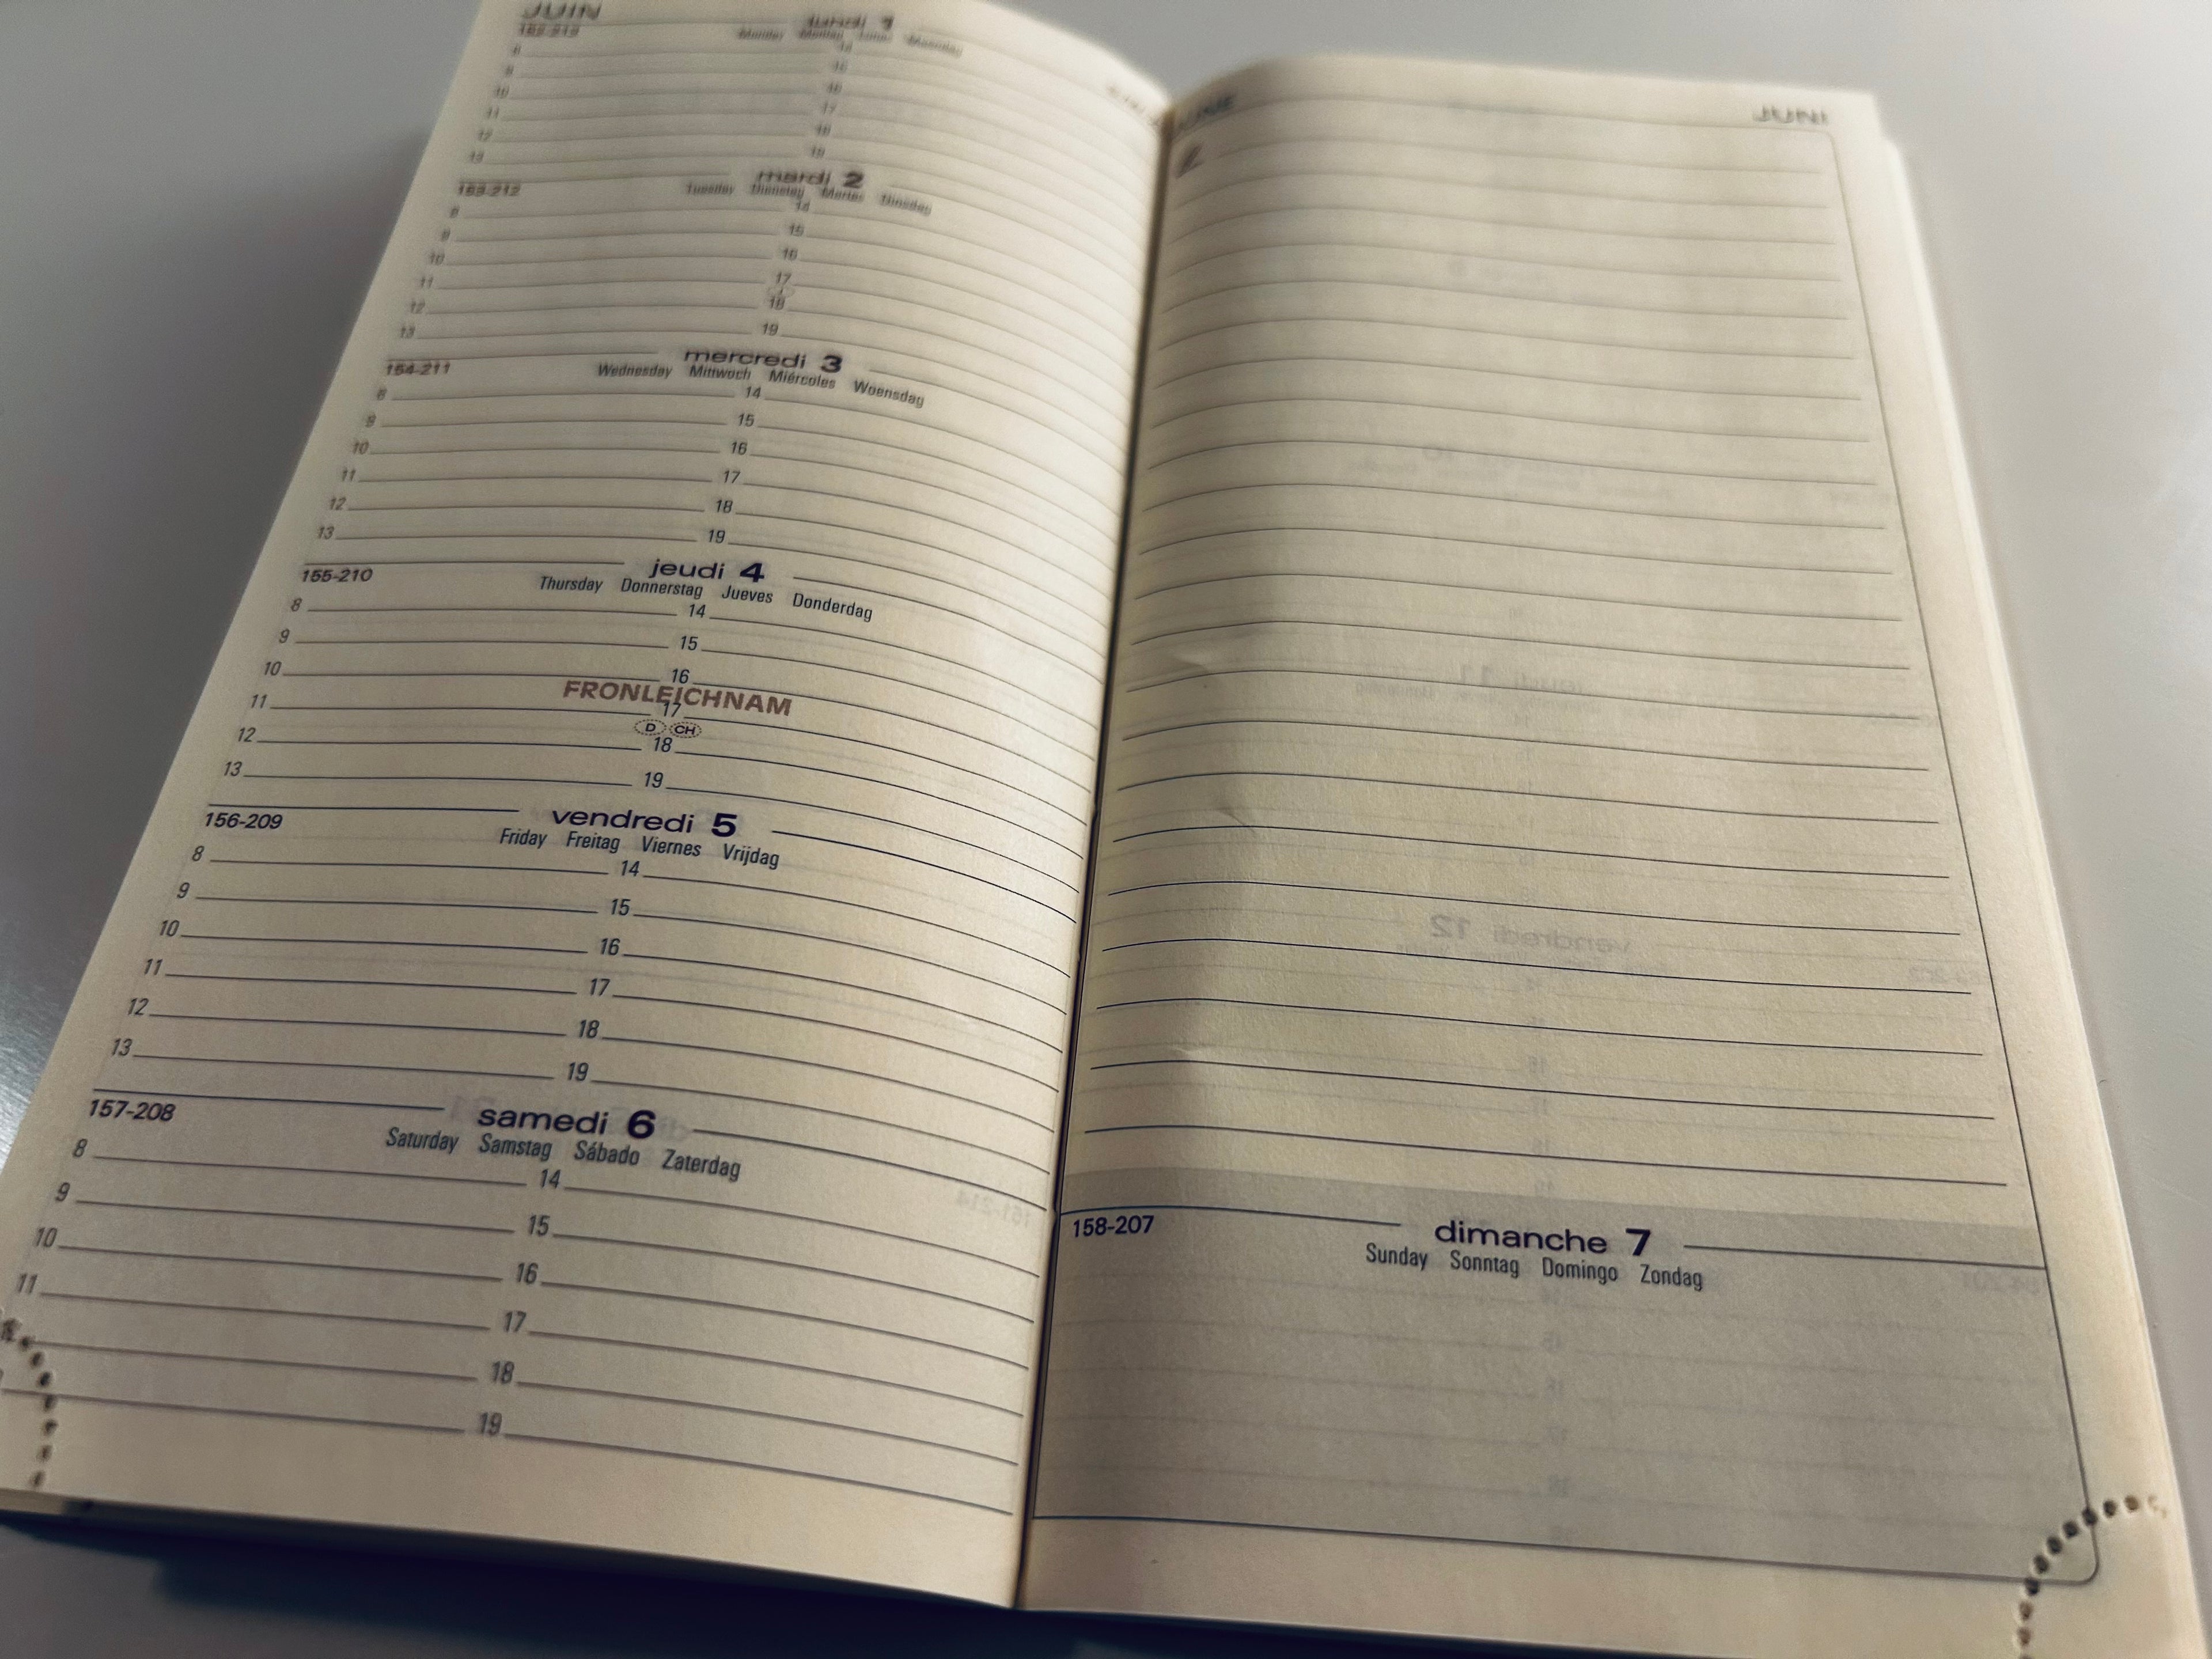 JUIN
lundi 1
Monday Montag Lunes Maandag
8 14
9 15
10 16
11 17
12 18
13 19
153-212
mardi 2
Tuesday Dienstag Martes Dinsdag
8 14
9 15
10 16
11 17
12 18
13 19
154-211
mercredi 3
Wednesday Mittwoch Miércoles Woensdag
8 14
9 15
10 16
11 17
12 18
13 19
155-210
jeudi 4
Thursday Donnerstag Jueves Donderdag
8 14
9 15
10 16
FRONLEICHNAM
11 17
D CH
12 18
13 19
156-209
vendredi 5
Friday Freitag Viernes Vrijdag
8 14
9 15
10 16
11 17
12 18
13 19
157-208
samedi 6
Saturday Samstag Sábado Zaterdag
8 14
9 15
10 16
11 17
18
19
JUNE JUNI
158-207
dimanche 7
Sunday Sonntag Domingo Zondag